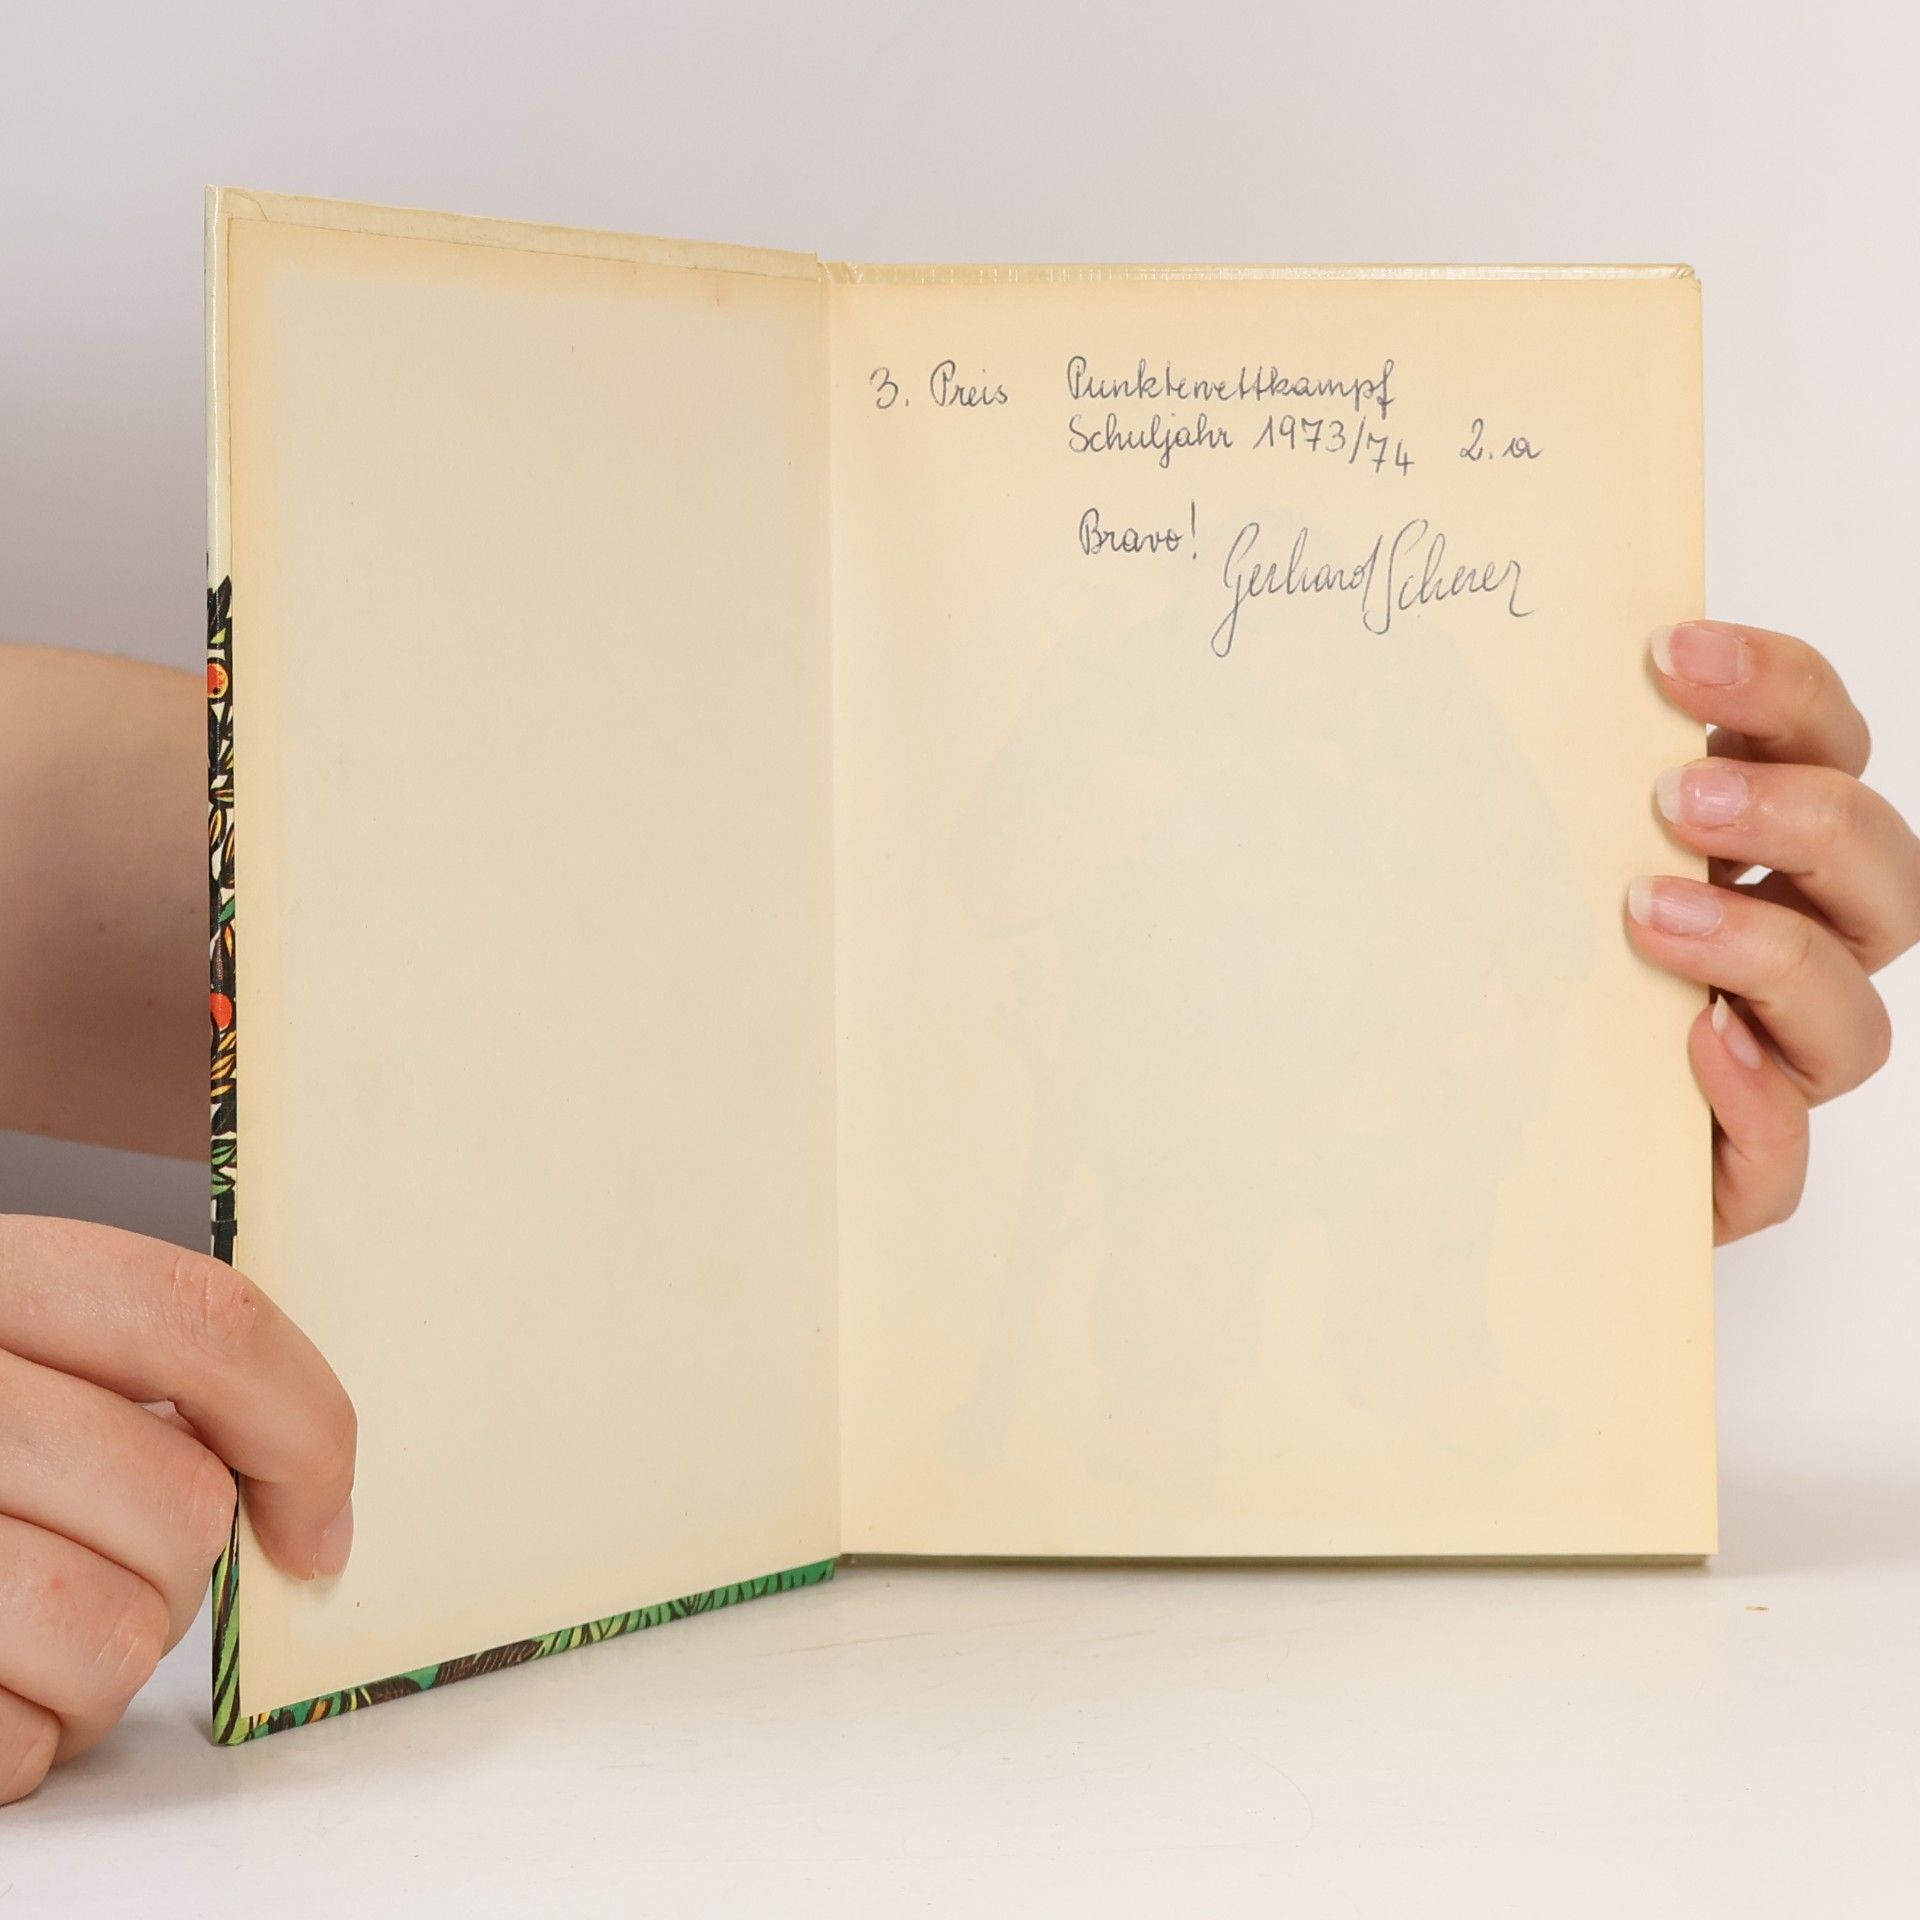 3. Preis Punktewettkampf
Schuljahr 1973/74 2.a
Bravo! Gerhard Scherer